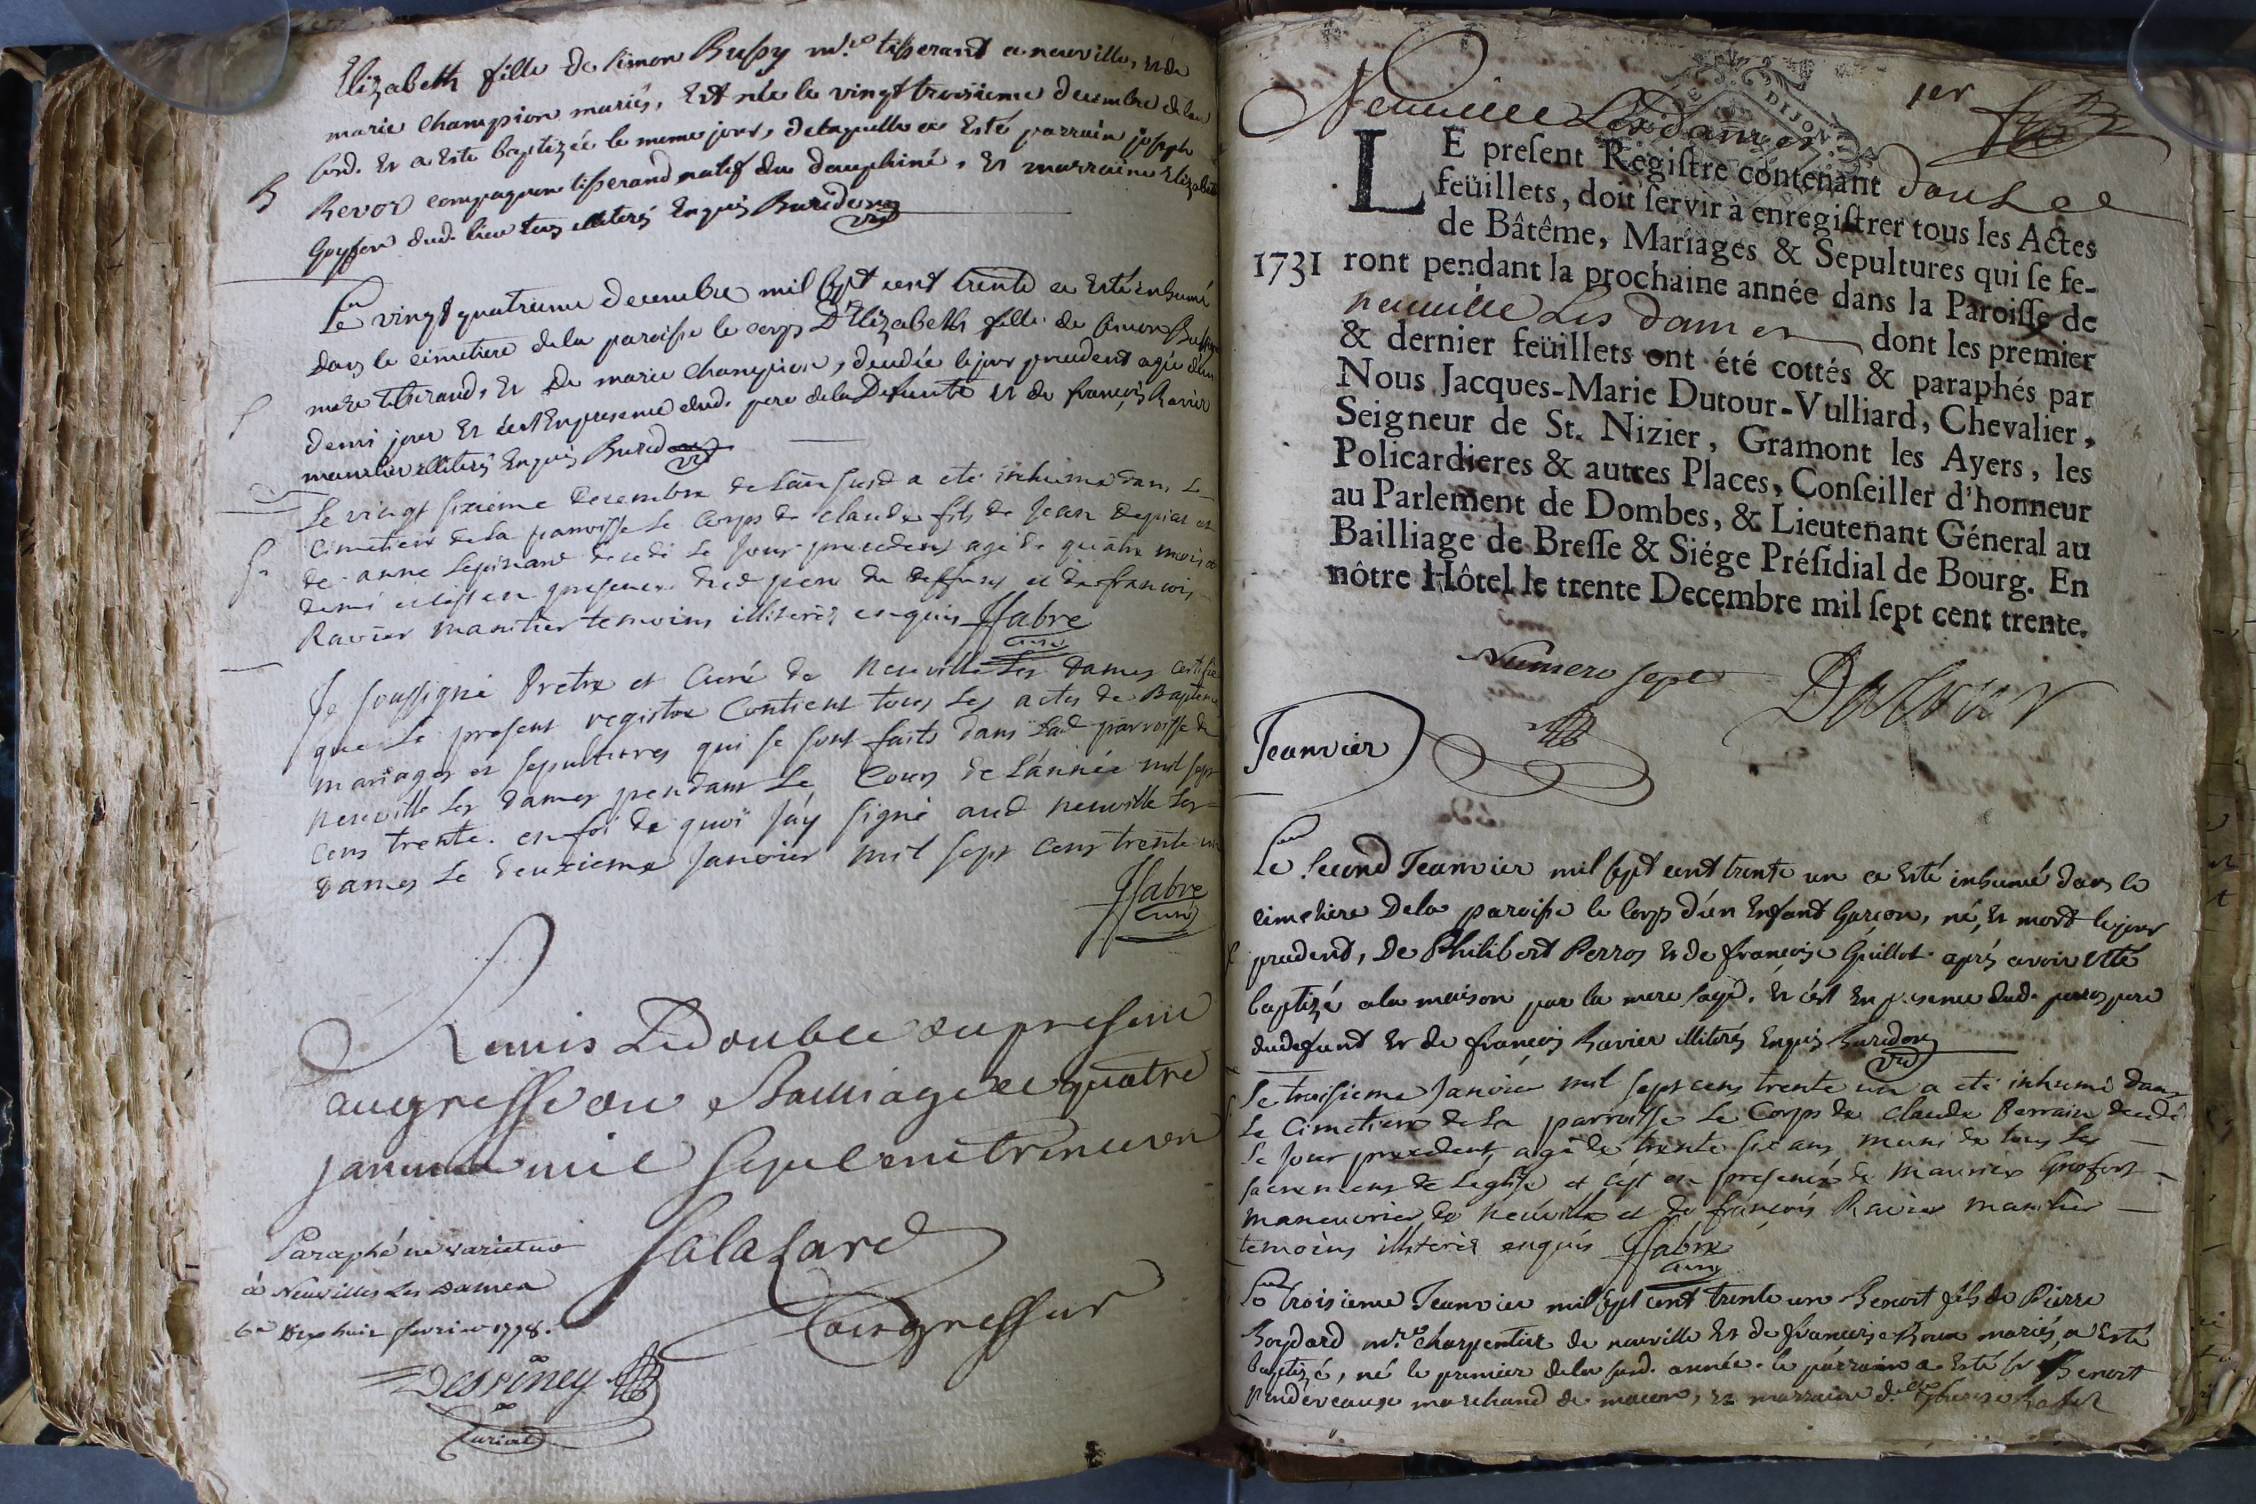 Elizabeth fille de Simon Bussy m.re tisserand a neuville, et de
marie champion mariés, est née le vingt troisieme decembre de lan
susd. et a esté baptizée le meme jour, de laquelle a esté parrain joseph
B
Revor compagnon tisserand natif du dauphiné, et marraine Elizabeth
dud. lieu tous illiterés enquis Buridon
vic
Le vingt quatrieme decembre mil sept cent trente a esté inhumé
dans le cimetiere de la paroisse le corps D'Elizabeth fille de Simon Bussy
m.re tisserand, et de marie champion, decedée le jour precedent agée d'un
S
demi jour et c'est en presence dud. pere de la defunte et de françois Ravier
manilier illiterés enquis Buridon
vic
Le vingt sixieme decembre de l'an susd a eté inhumé dans le
cimetiere de la parroisse le corps de claude fils de Jean et
S
de anne decedé le jour precedent agé de quatre mois et
demi et c'est en presence dud pere du deffunt et de francois
Ravier manilier temoins illiterés enquis JFabre
curé
Je soussigné Pretre et Curé de Neuville Les Dames certifie
que le present registre contient tous les actes de Bapteme
mariages et sepultures qui se sont faits dans lad parroisse de
Neuville les dames pendant le cours de l'année mil sept
cens trente. en foi de quoi j'ay signé aud neuville les
dames le deuxieme janvier mil sept cens trente un
JFabre
curé
Remis Le double du present
au greffe du Bailliage ce quatre
janvier mil sept cent trente un
Salazard
Commis greffier
Paraphé ne varietur
à Neuville Les Dames
ce dix huit fevrier 1778.
Neuville Les dames
1er
DIJON
LE preſent Regiſtre contenant douze
feüillets, doit ſervir à enregiſtrer tous les Actes
de Bâtême, Mariages & Sepultures qui ſe fe-
1731 ront pendant la prochaine année dans la Paroiſſe de
neuville Les dames dont les premier
& dernier feüillets ont été cottés & paraphés par
Nous Jacques-Marie Dutour-Vulliard, Chevalier,
Seigneur de St. Nizier, Gramont les Ayers, les
Policardieres & autres Places, Conſeiller d'honneur
au Parlement de Dombes, & Lieutenant Géneral au
Bailliage de Breſſe & Siége Préſidial de Bourg. En
nôtre Hôtel le trente Decembre mil ſept cent trente.
Numero sept
Dutour
Jeanvier
Le second Jeanvier mil sept cent trente un a esté inhumé dans le
cimetiere de la paroisse le corps d'un Enfant Garcon, né, et mort le jour
precedent, de Philibert Perros et de françoise Guillot apres avoir esté
baptizé a la maison par la mere sage. et c'est en presence dud. perros pere
du defunt et de françois Ravier illiterés enquis Buridon
vic
Le troisieme Janvier mil sept cens trente un a eté inhumé dans
le cimetiere de la parroisse le corps de claude Perrain decedé
le jour precedent, agé de trente six ans, muni de tous les
sacremens de l'eglise et c'est en presence de maurice
maneuvrier de neuville et de françois Ravier manilier
temoins illiterés enquis JFabre
curé
Le troisieme Jeanvier mil sept cent trente un Benoit fils de Pierre
m.re charpentier de neuville et de francoise mariés, a esté
baptizé, né le premier de la susd. année. le parrain a esté sr Benoit
marchand de macon, et marraine d.elle